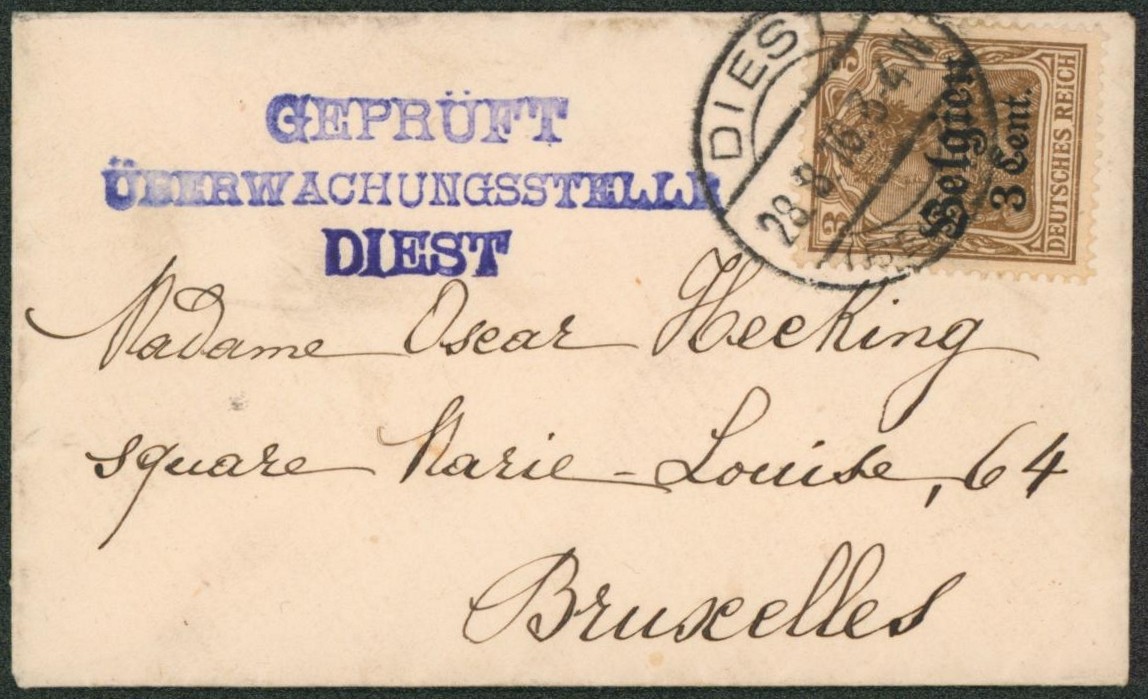 GEPRÜFT
ÜBERWACHUNGSSTELLE
DIEST
DIES
28. 8 16. 3-4 N
3
3
Belgien
3 Cent.
DEUTSCHES REICH
Madame Oscar Hecking
square Marie-Louise, 64
Bruxelles